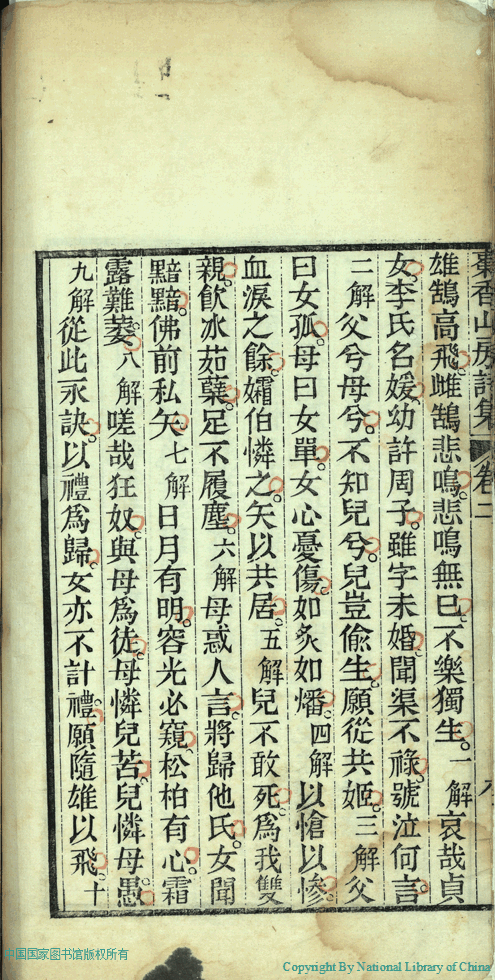 棗香山房詩集 卷二
雄鵠高飛。雌鵠悲鳴。悲鳴無已。不樂獨生。一解哀哉貞
女。李氏名媛。幼許周子。雖字未婚。聞渠不祿。號泣何言。
二解父兮母兮。不知兒兮。兒豈偷生。願從共姬。三解父
曰女孤。母曰女單。女心憂傷。如炙如燔。四解以愴以慘。
血淚之餘。孀伯憐之。矢以共居。五解兒不敢死。為我雙
親。飲冰茹蘗。足不履塵。六解母惑人言。將歸他氏。女聞
黯黯。佛前私矢。七解日月有明。容光必窺。松柏有心。霜
露難萎。八解嗟哉狂奴。與母為徒。母憐兒苦。兒憐母愚。
九解從此永訣。以禮為歸。女亦不計禮。願隨雄以飛。十
中国国家图书馆版权所有
Copyright By National Library of China